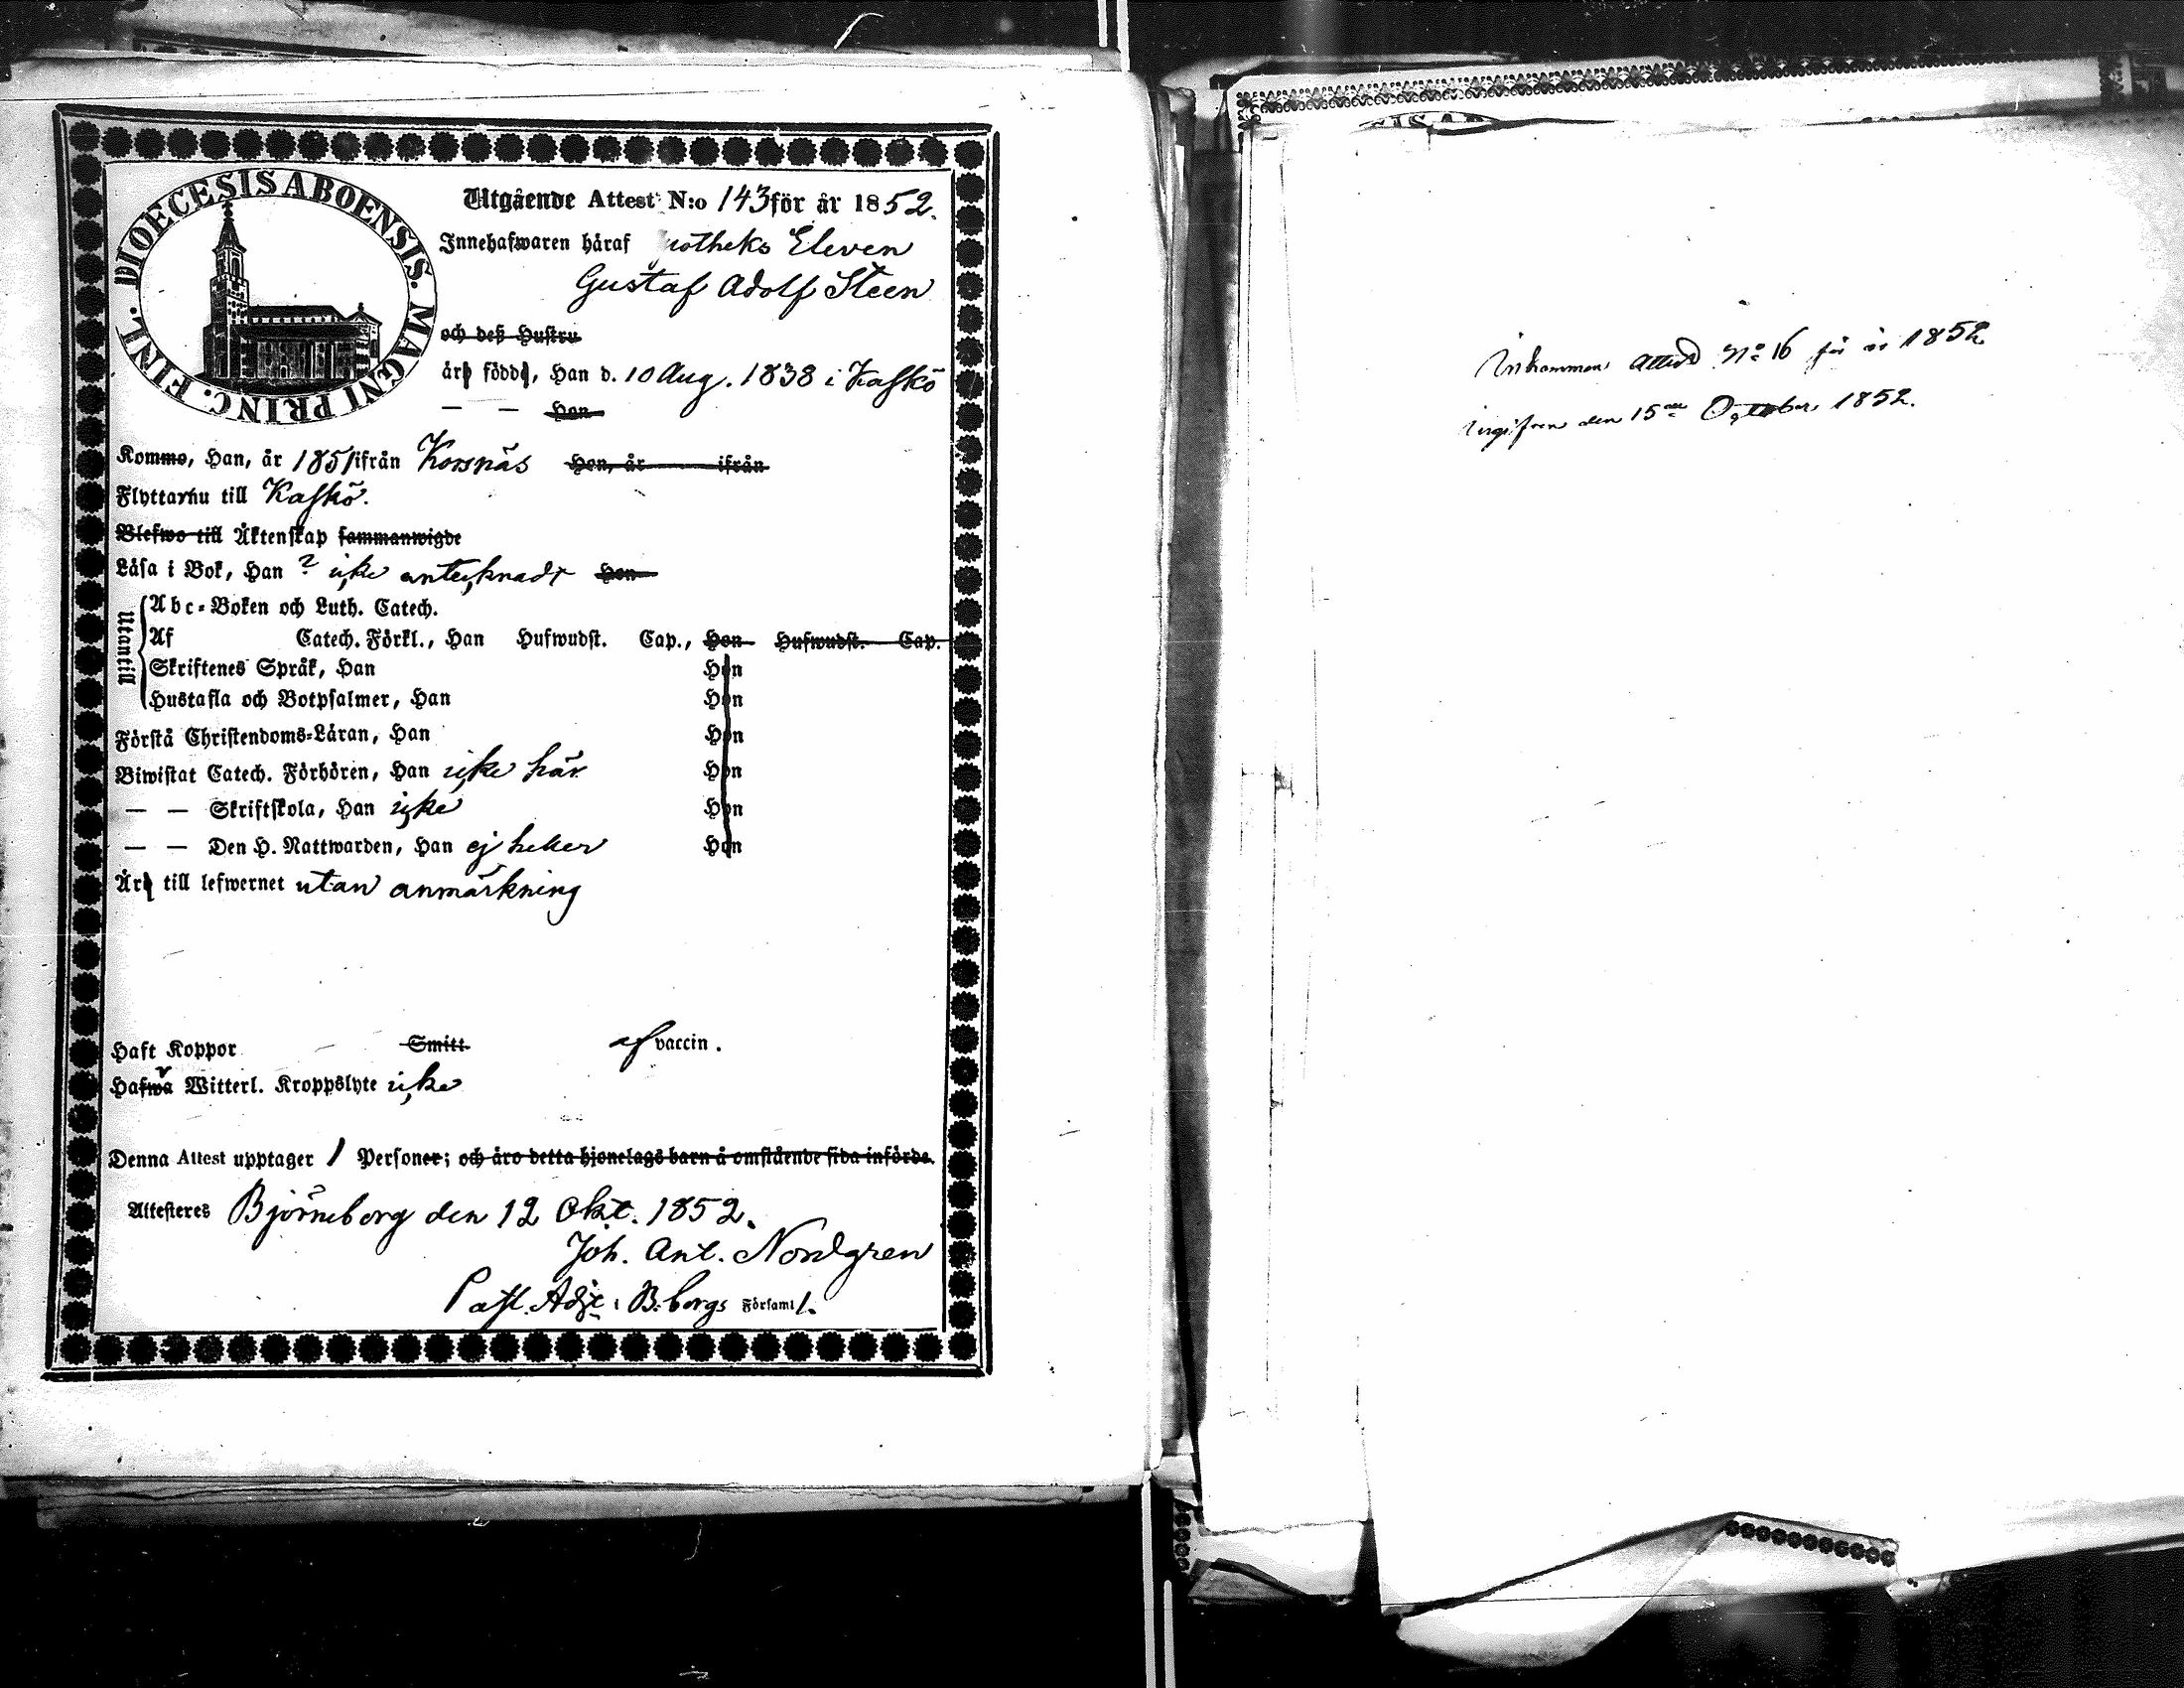 DIOECESIS ABOENSIS. MAGNI PRINC. FINL.
Utgående Attest N:o 143 för år 1852.
Innehafwaren häraf potheks Eleven
Gustaf Adolf Steen
och deß Hustru
äro födde, Han d. 10 Aug. 1838 i Kaskö
— — Hon
Kommo, Han, år 1851 ifrån Korsnäs Hon, år ifrån
Flyttar nu till Kaskö.
Blefwo till Äktenskap sammanwigde
Läsa i Bok, Han ? icke antecknadt Hon
Utantill
Abc-Boken och Luth. Catech.
Af Catech. Förkl., Han Hufwudst. Cap., Hon Hufwudst. Cap.
Skriftenes Språk, Han Hon
Hustafla och Botpsalmer, Han Hon
Förstå Christendoms-Läran, Han Hon
Biwistat Catech. Förhören, Han icke här Hon
— — Skriftskola, Han icke Hon
— — Den H. Nattwarden, Han ej heller Hon
Äro till lefwernet utan anmärkning
Haft Koppor Smitt af vaccin.
Hafwa r Witterl. Kroppslyte icke
Denna Attest upptager 1 Personer; och äro detta hjonelags barn å omstående sida införde.
Attesteres Björneborg den 12 Okt. 1852.
Joh. Ant. Nordgren
Past. Adj. i B:borgs Församl.
Inkommen Attest No 16 för år 1852
ingifven den 15de October 1852.